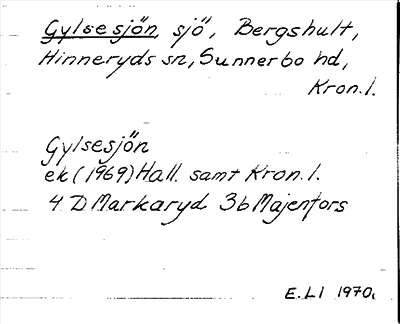 Gylsesjön, sjö, Bergshult,
Hinneryds sn, Sunnerbo hd,
Kron.l.
Gylsesjön
ek (1969) Hall. samt Kron.l.
4 D Markaryd 3b Majenfors
E.LI 1970.